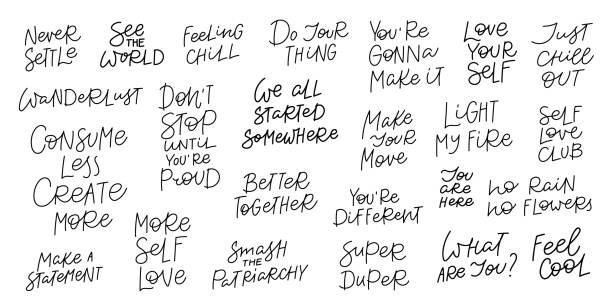 Never
Settle
See
THE
World
Feeling
Chill
Do Your
Thing
You're
Gonna
Make it
Love
Your
Self
Just
Chill
Out
Wanderlust
Don't
Stop
until
You're
Proud
We all
Started
Somewhere
Make
Your
Move
Light
My Fire
Self
Love
Club
Consume
Less
Create
More
Better
Together
You're
Different
You
are
here
no Rain
no Flowers
Make a
Statement
More
Self
Love
Smash
the
Patriarchy
Super
Duper
What
are you?
Feel
Cool